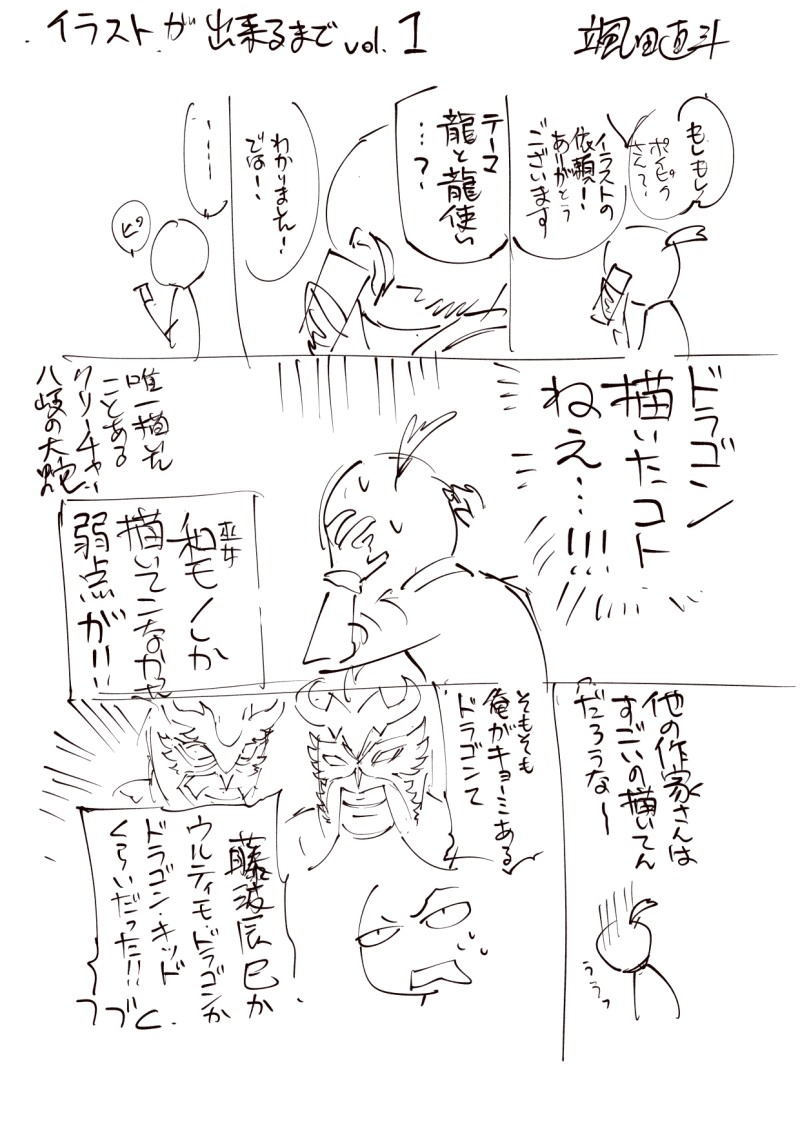 イラストが出来るまでvol.1
颯田直斗
もしもし
ポピーの
さんで…
イラストの
依頼!
ありがとう
ございます
テーマ
龍と龍使い
…?
わかりました!
では!
……
ピッ
ドラゴン
描いたコト
ねえ…!!!
唯一描いた
ことある
クリーチャー
八岐の大蛇
巫女
和モノしか
描いてこなかった
弱点が!!
他の作家さんは
すごいの描いてん
だろうな〜
ううっ
そもそも
俺がキョーミある
ドラゴンて
藤波辰巳か
ウルティモ・ドラゴンか
ドラゴン・キッド
くらいだった!!
つづく.